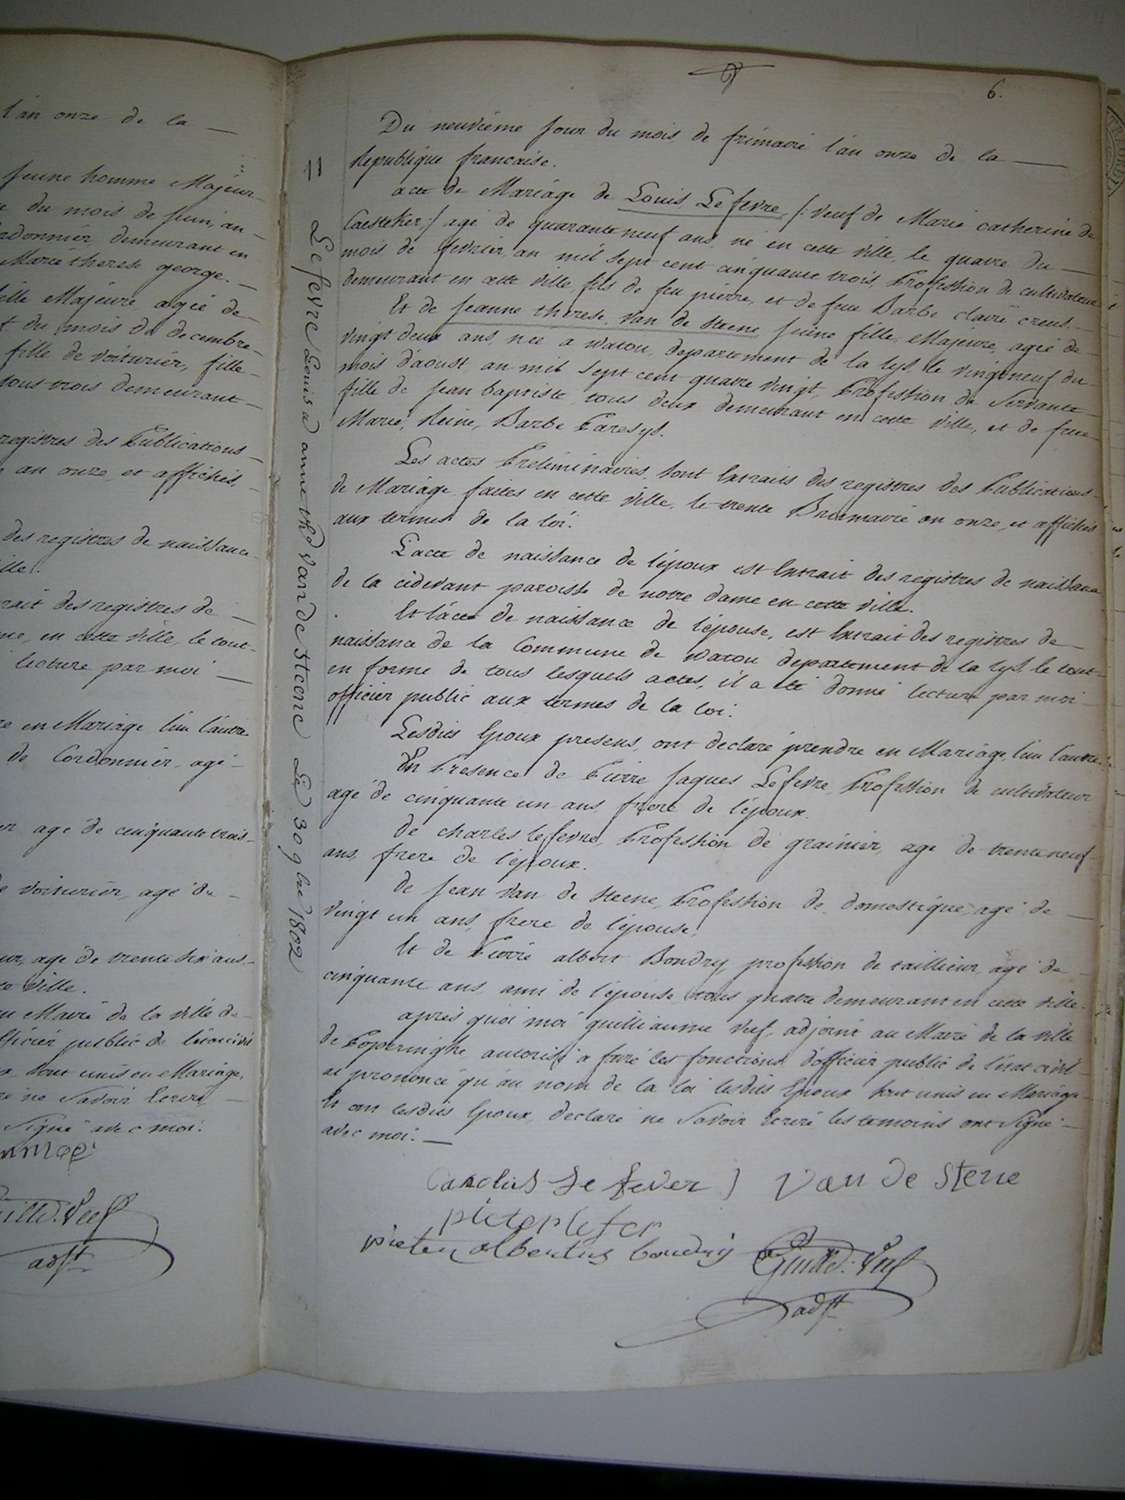 l'an onze de la —
jeune homme Majeur
du mois de juin, an
cordonnier demeurant en
Marie therese george. —
fille Majeure agée de
du mois de decembre
fille de voiturier, fille
tous trois demeurant —
registres des Publications
an onze, et affichés,
des registres de naissance
ville.
extrait des registres de
en cette ville, le tout
lecture par moi —
en Mariage l'un l'autre
de Cordonnier, agé
agé de cinquante trois
de voiturier, agé de
agé de trente six ans
ville.
au Maire de la ville de
officier public de l'état civil
sont unis en Mariage,
ne Savoir Ecrire
Signé avec moi.
Guill. Veuf
adjt
11 Lefevre Louis a anne thd van de Steene Le 30 9bre 1802
6.
Du neuvième jour du mois de frimaire l'an onze de la —
Republique francaise.
acte de Mariage de Louis Lefevre /: veuf de Marie catherine de
Caesteker :/ agé de quarante neuf ans, né en cette ville, le quatre du —
mois de fevrier, an mil sept cent cinquante trois, Profession de cultivateur
demeurant en cette ville, fils de feu pierre, et de feue Barbe claire creus. —
Et de Jeanne therese van de Steene jeune fille, Majeure, agée de
vingt deux ans, née a watou, departement de la lys, le vingtneuf du
mois d'aoust an mil sept cent quatre vingt, Profession de Servante
fille de jean baptiste, tous deux demeurant en cette ville, et de feue
Marie, Reine, Barbe Caresyl.
Les actes Preliminaires, sont Extraits des registres des Publications
de Mariage faites en cette ville, le trente Brumaire an onze, et affichés
aux termes de la loi.
L'acte de naissance de l'époux est Extrait des registres de naissance
de la cidevant paroisse de notre dame en cette ville.
Et l'acte de naissance de l'épouse, est Extrait des registres de
naissance de la Commune de watou departement de la lys, le tout
en forme de tous lesquels actes, il a été donné lecture par moi
officier public aux termes de la loi.
Lesdits Epoux presens, ont declaré prendre en Mariage l'un l'autre.
En Presence de Pierre Jaques Lefevre, Profession de cultivateur
agé de cinquante un ans, frere de l'époux.
de charles lefevre, Profession de grainier, agé de trenteneuf
ans, frere de l'époux.
de Jean van de steene, Profession de domestique, agé de —
vingt un ans, frere de l'épouse,
Et de Pierre albert Boudry, profession de taillieur, agé de
cinquante ans, ami de l'épouse, tous quatre demeurant en cette ville.
après quoi moi guilliaume veuf, adjoint au Maire de la ville
de Poperinghe autorisé a faire les fonctions d'officier public de l'état civil
ai prononcé qu'au nom de la loi lesdits Epoux sont unis en Mariage
Et ont lesdits Epoux, declaré ne Savoir Ecrire les temoins ont signé —
avec moi. —
Carolus De fever van de Stene
pieter lefer
pieter albertus boudrÿ
Guill. Veuf
adjt